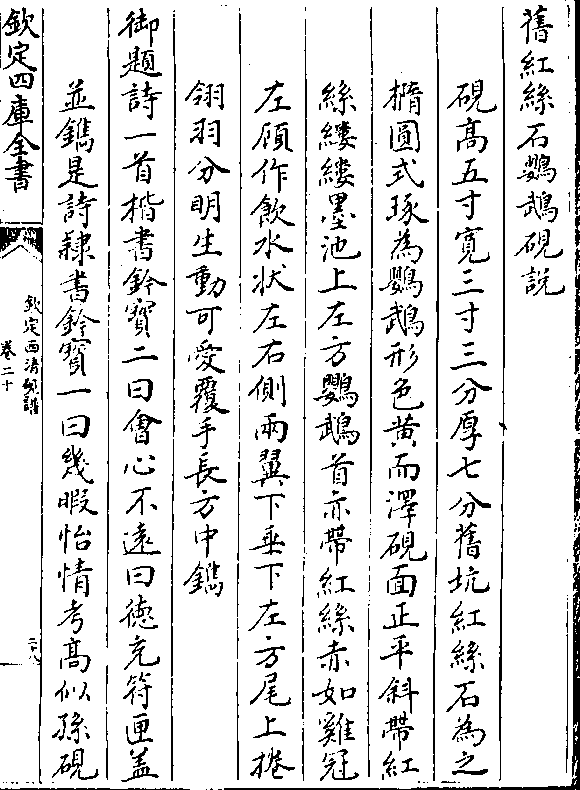 舊紅絲石鸚鵡硯說
硯高五寸寬三寸三分厚七分舊坑紅絲石為之
橢圓式琢為鸚鵡形色黄而澤硯面正平斜帶紅
絲縷縷墨池上左方鸚鵡首亦帶紅絲赤如雞冠
左顧作飲水狀左右側兩翼下垂下左方尾上捲
翎羽分明生動可愛覆手長方中鐫
御題詩一首楷書鈐寶二曰會心不遠曰德充符匣葢
並鐫是詩隸書鈐寶一曰幾暇怡情考高似孫硯
欽定四庫全書
欽定西清硯譜
卷二十
二十八